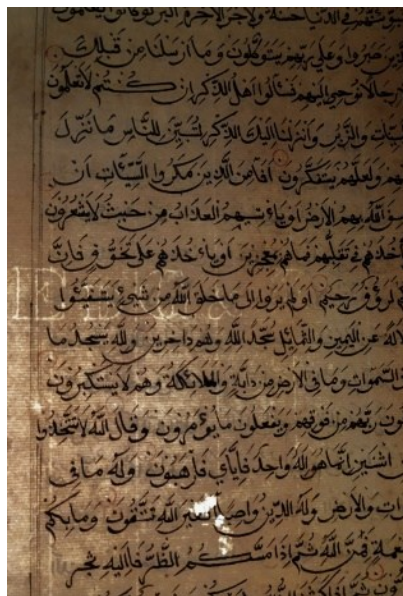 في الدنيا حسنة ولاجر الاخرة اكبر لو كانوا يعلمون
الذين صبروا وعلى ربهم يتوكلون وما ارسلنا من قبلك
رجالا نوحي اليهم فسألوا اهل الذكر ان كنتم لا تعلمون
والزبر وانزلنا اليك الذكر لتبين للناس ما نزل
ولعلهم يتفكرون افامن الذين مكروا السيئات ان
الله بهم الارض او ياتيهم العذاب من حيث لا يشعرون
في تقلبهم فماهم بمعجزين او ياخذهم على تخوف فان
لرؤف رحيم اولم يروا الى ما خلق الله من شيئ يتفيئوا
عن اليمين والشمائل سجدا لله وهم داخرون ولله يسجد ما
السموات وما في الارض من دابة والملائكة وهم لا يستكبرون
ربهم من فوقهم ويفعلون ما يؤمرون وقال الله لا تتخذوا
اثنين انما هو اله واحد فاياي فارهبون وله ما في
والارض وله الدين واصبا افغير الله تتقون وما بكم
فمن الله ثم اذا مسكم الضر فاليه تجر